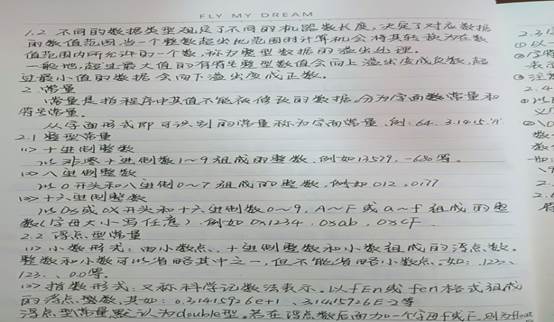 FLY MY DREAM
1.2 不同的数据类型规定了不同的机器数长度,决定了对应数据
的数值范围,当一个整数超出此范围时计算机会将其转换为在数
值范围内所允许的一个数,称为整型数据的溢出处理。
一般地,超过最大值的有符号整型数值会向上溢出变成负数,超
过最小值的数据会向下溢出变成正数。
2 常量
常量是指程序中其值不能被修改的数据,分为字面数常量和
符号常量。
从字面形式即可识别的常量称为字面常量,例:64、3.1415、'A'
2.1 整型常量
(1) 十进制整数
以非零十进制数1~9组成的整数,例如13579、-680等。
(2) 八进制整数
以0开头和八进制0~7组成的整数,例如012、0177
(3) 十六进制整数
以0x或0X开头和十六进制数0~9、A~F或a~f组成的整
数(字母大小写任意),例如0x1234、0xab、0xCF
2.2 浮点型常量
(1) 小数形式:由小数点、十进制整数和小数组成的浮点数。
整数和小数可以省略其中之一,但不能省略小数点,如:.123、
123.、0.0等。
(2) 指数形式:又称科学记数法表示,以fEn或fen格式组成
的浮点整数,其如:0.31415926e+1、.31415926E-2等
浮点型常量默认为double型。若在浮点数后面加一个字母f或F,则为float
2.3
①以
表示
③注
2.4
①以
义